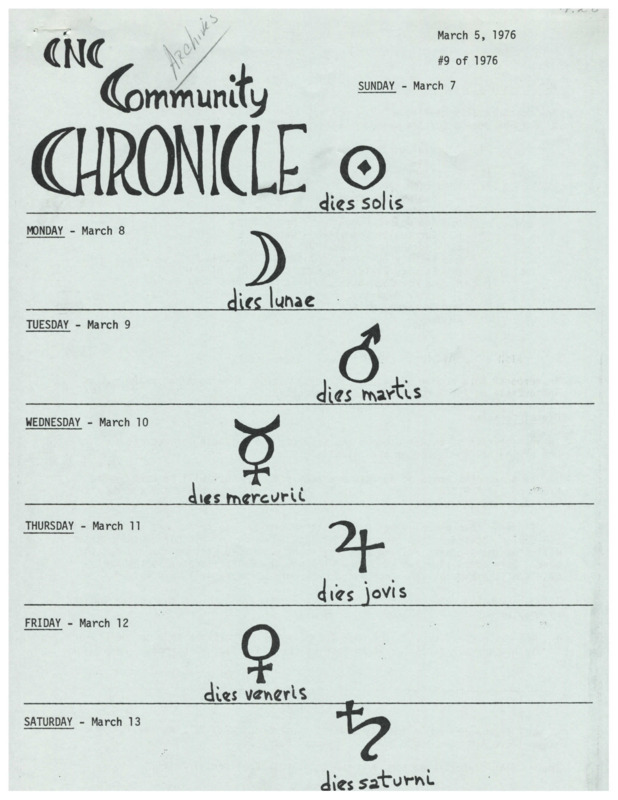 CNC
Archives
Community
CHRONICLE
March 5, 1976
#9 of 1976
SUNDAY - March 7
dies solis
MONDAY - March 8
dies lunae
TUESDAY - March 9
dies martis
WEDNESDAY - March 10
dies mercurii
THURSDAY - March 11
dies jovis
FRIDAY - March 12
dies veneris
SATURDAY - March 13
dies saturni